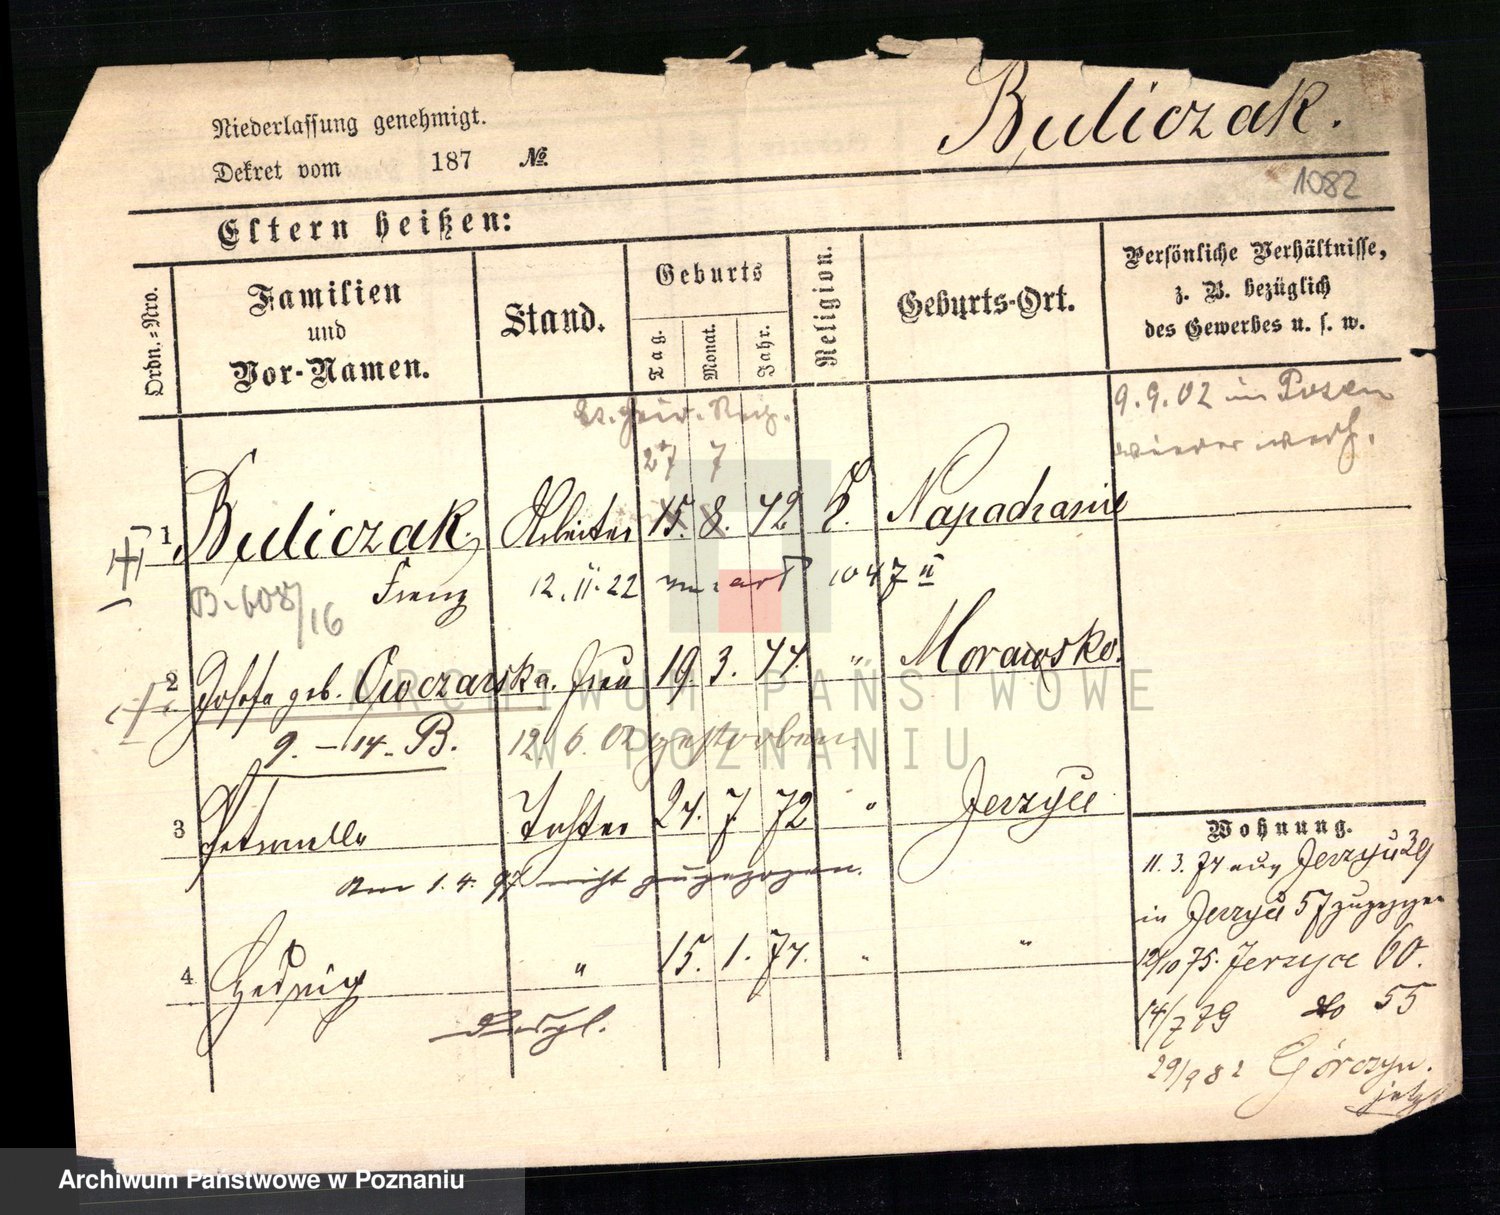 Buliczak.
Niederlassung genehmigt.
Dekret vom 187 №
1082
Eltern heißen:
Ordn.-Nro.
Familien
und
Vor-Namen.
Stand.
Geburts
Tag.
Monat.
Jahr.
Religion.
Geburts-Ort.
Persönliche Verhältnisse,
z. B. bezüglich
des Gewerbes u. s. w.
9.9.02 in Posen
wieder
27 7
1 Buliczak, Arbeiter 15. 8. 42 k. Napachanie
B. 608/16 Franz 12.11.22 1047 II
2 Josefa geb. Owczarska. Frau 19. 3. 44. " Morawsko.
9. – 14. B. 12. 6. 02 gestorben
3 Petronella Tochter 24. 7. 72 " Jerzyce
Am 1.4.97 nicht zugezogen.
4 Hedwig " 15. 1. 74. " "
desgl.
Wohnung.
11.3.74 aus Jerzyce 29
in Jerzyce 57 zugezogen
12/10 75. Jerzyce 60.
14/7 79 do 55
29/9 82 Górczyn.
jetzt
ARCHIWUM PAŃSTWOWE
W POZNANIU
Archiwum Państwowe w Poznaniu